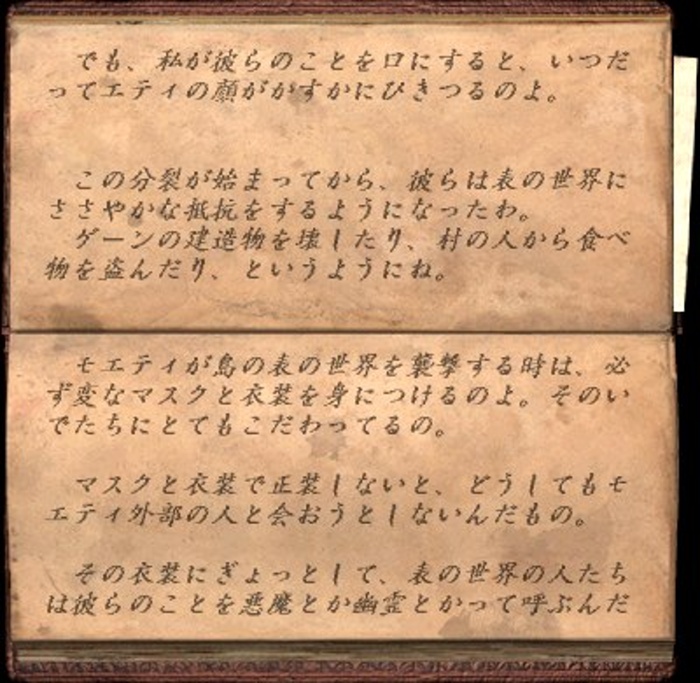 でも、私が彼らのことを口にすると、いつだ
ってエティの顔がかすかにひきつるのよ。
この分裂が始まってから、彼らは表の世界に
ささやかな抵抗をするようになったわ。
ゲーンの建造物を壊したり、村の人から食べ
物を盗んだり、というようにね。
モエティが島の表の世界を襲撃する時は、必
ず変なマスクと衣装を身につけるのよ。そのい
でたちにとてもこだわってるの。
マスクと衣装で正装しないと、どうしてもモ
エティ外部の人と会おうとしないんだもの。
その衣装にぎょっとして、表の世界の人たち
は彼らのことを悪魔とか幽霊とかって呼ぶんだ